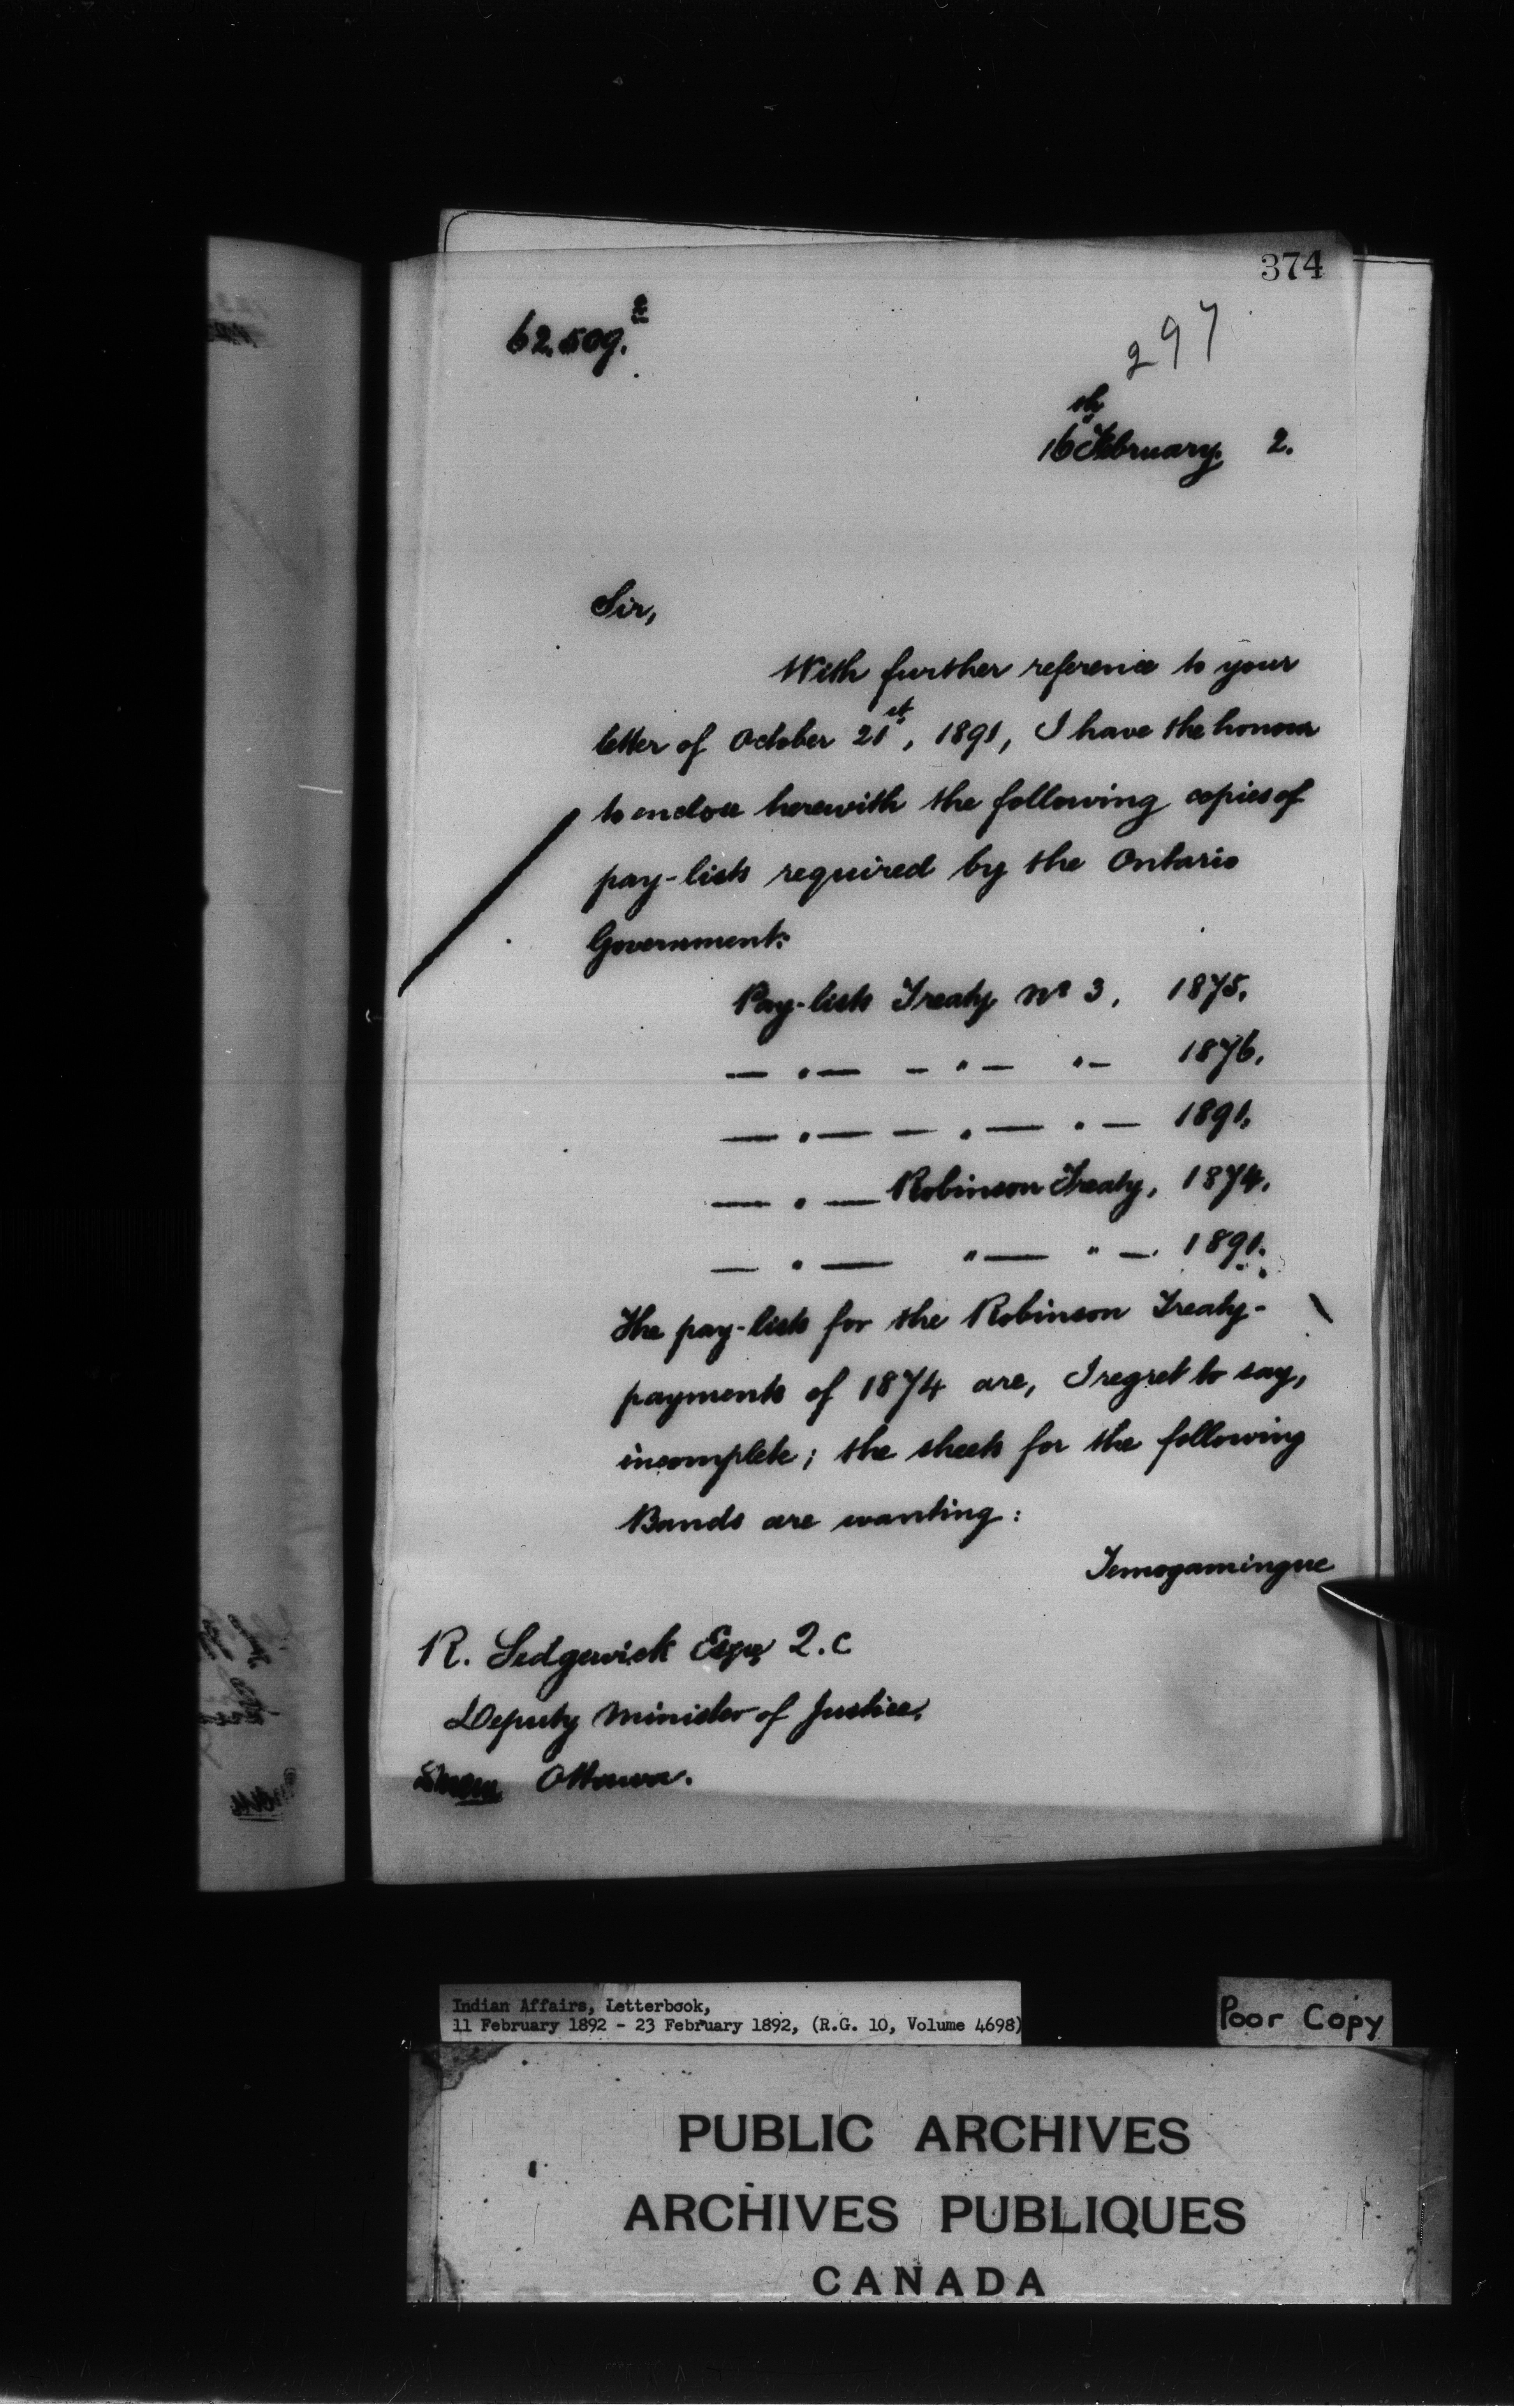 374
62.509.
297
16th February, 2.
Sir,
With further reference to your
letter of October 21st, 1891, I have the honour
to enclose herewith the following copies of
pay-lists required by the Ontario
Government:
Pay-lists Treaty No 3, 1875.
— " — — " — " — 1876.
— " — — " — " — 1891.
— " — Robinson Treaty, 1874.
— " — " — " — 1891.
The pay-lists for the Robinson Treaty-
payments of 1874 are, I regret to say,
incomplete; the sheets for the following
Bands are wanting:
Temogamingue
R. Sedgewick Esqre Q.C
Deputy Minister of Justice,
Ottawa.
Indian Affairs, Letterbook,
11 February 1892 - 23 February 1892, (R.G. 10, Volume 4698)
Poor Copy
PUBLIC ARCHIVES
ARCHIVES PUBLIQUES
CANADA